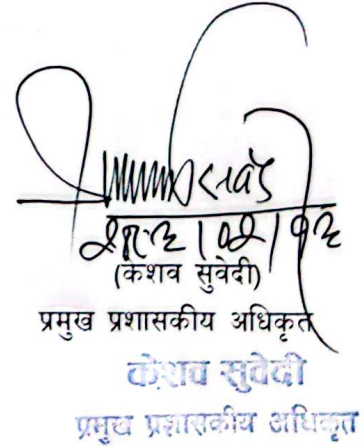 (केशव सुवेदी)
प्रमुख प्रशासकीय अधिकृत
केशव सुवेदी
प्रमुख प्रशासकीय अधिकृत